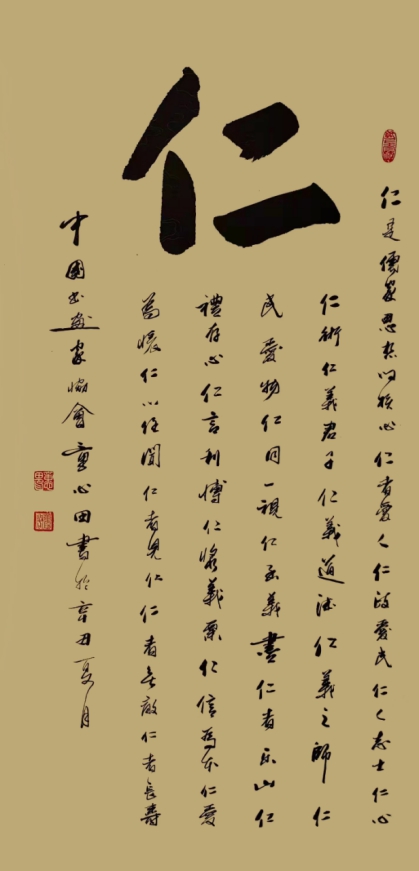 仁
仁是儒家思想的核心仁者愛人仁政愛民仁人志士仁心
仁術仁義君子仁義道德仁義之師仁
民愛物仁同一視仁至義盡仁者乐山仁
禮存心仁言利博仁漿義粟仁信為本仁愛
為懷仁以仁者見仁仁者无敵仁者長壽
中國书畫家協會童心田書於辛丑夏月